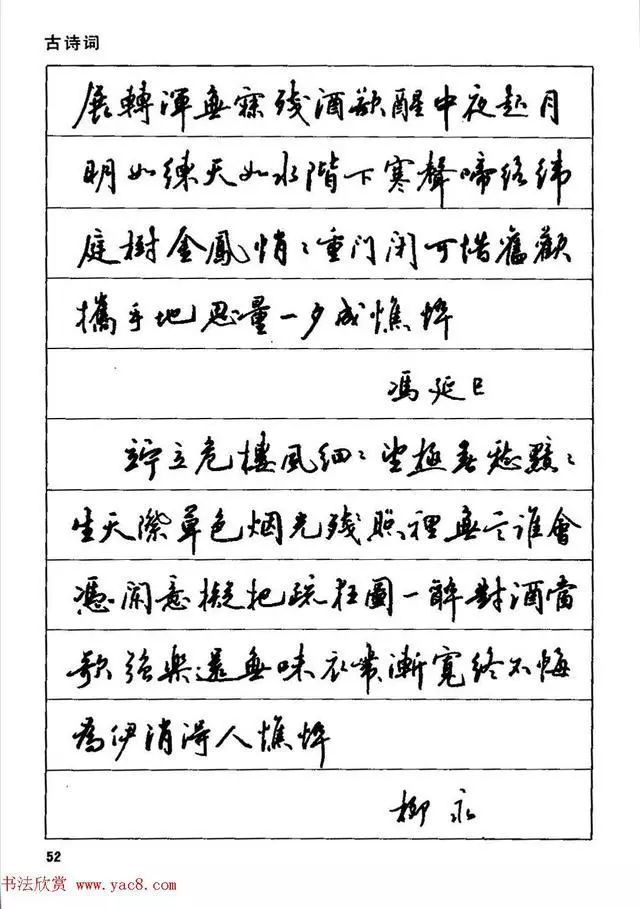 古诗词
展轉渾無寐残酒欲醒中夜起月
明如練天如水階下寒聲啼络緯
庭樹金鳳悄〻重门闭可惜舊歡
攜手地思量一夕成憔悴
馮延巳
竚立危樓風细〻望極春愁黯〻
生天際草色烟光残照裡無言誰會
憑闌意擬把疏狂圖一醉對酒當
歌强樂還無味衣帶漸寬终不悔
為伊消得人憔悴
柳永
52
书法欣赏 www.yac8.com